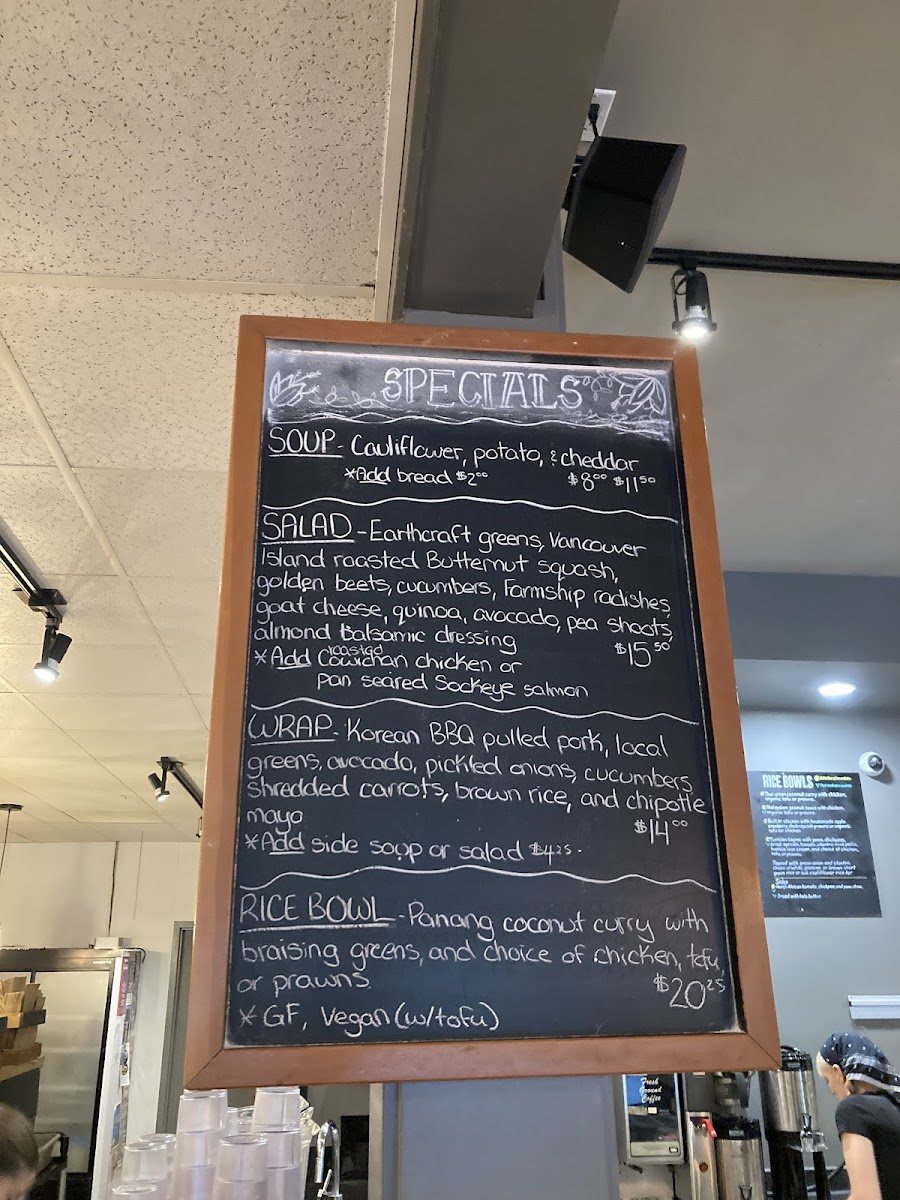 SPECIALS
SOUP - Cauliflower, potato, & cheddar
*Add bread $2.00
$8.00 $11.50
SALAD - Earthcraft greens, Vancouver
Island roasted Butternut squash,
golden beets, cucumbers, Farmship radishes,
goat cheese, quinoa, avocado, pea shoots,
almond balsamic dressing
$15.50
roasted
*Add Cowichan chicken or
pan seared Sockeye salmon
WRAP - Korean BBQ pulled pork, local
greens, avocado, pickled onions, cucumbers,
shredded carrots, brown rice, and chipotle
mayo
$14.00
*Add side soup or salad $4.25.
RICE BOWL - Panang coconut curry with
braising greens, and choice of chicken, tofu,
or prawns.
$20.25
* GF, Vegan (w/tofu)
RICE BOWLS
Fresh
Ground
Coffee